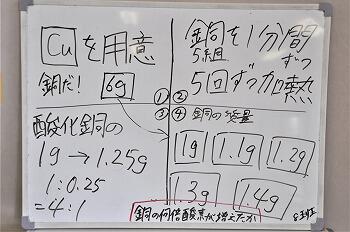 Cuを用意
銅だ!
6g
①
②
銅を1分間
5組
ずつ
5回ずつ加熱
③
酸化銅の
1g→1.25g
1:0.25
=4:1
④
銅の総量
1g
1.1g
1.2g
1.3g
1.4g
銅の何倍酸素が増えたか